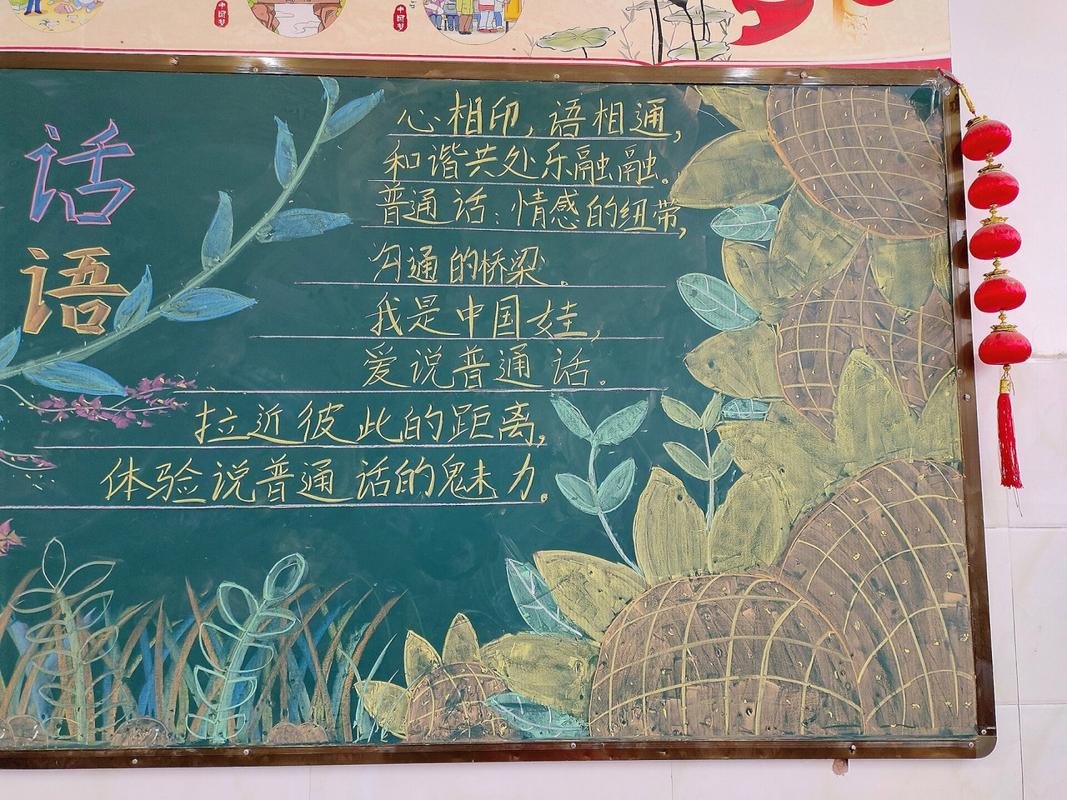 中国梦
中国梦
话
语
心相印,语相通,
和谐共处乐融融。
普通话:情感的纽带,
沟通的桥梁。
我是中国娃,
爱说普通话。
拉近彼此的距离,
体验说普通话的魅力。